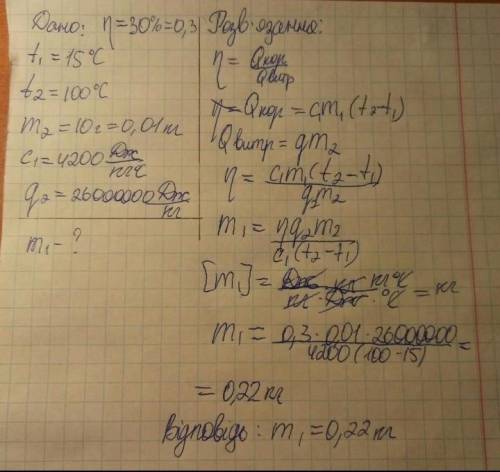 Дано: η=30%=0,3
t₁=15°C
t₂=100°C
m₂=10г=0,01кг
c₁=4200 Дж/кг°C
q₂=26000000 Дж/кг
m₁-?
Розв'язання:
η = Qкор/Qвитр
Qкор=c₁m₁(t₂-t₁)
Qвитр=qm₂
η = c₁m₁(t₂-t₁)/q₂m₂
m₁ = ηq₂m₂/c₁(t₂-t₁)
[m₁] = Дж·кг·кг°C/кг·Дж·°C = кг
m₁ = 0,3·0,01·26000000/4200(100-15) =
= 0,22кг
Відповідь: m₁=0,22кг